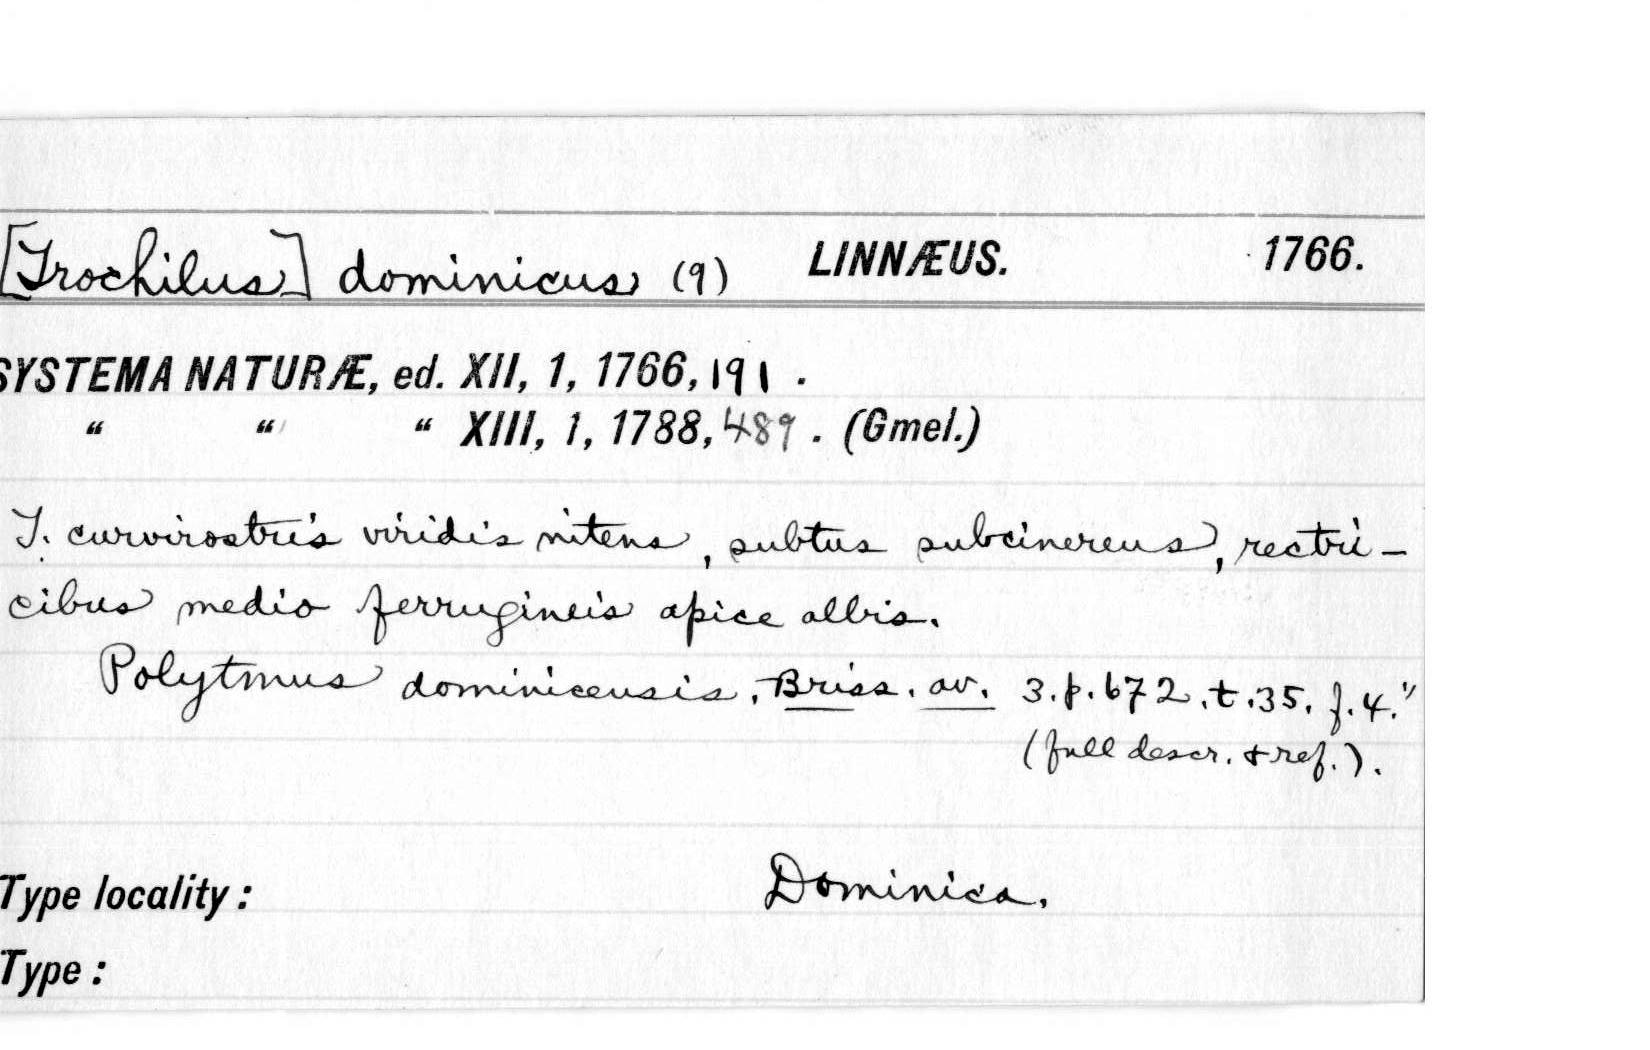 [Trochilus] dominicus (9) LINNÆUS. 1766.
SYSTEMA NATURÆ, ed. XII, 1, 1766, 191.
“ “ “ XIII, 1, 1788, 489. (Gmel.)
T. curvirostris viridis nitens, subtus subcinereus, rectri-
cibus medio ferrugineis apice albis.
Polytmus dominicensis. Briss. av. 3. p. 672. t. 35. f. 4."
(full descr. & ref.).
Type locality: Dominica.
Type: